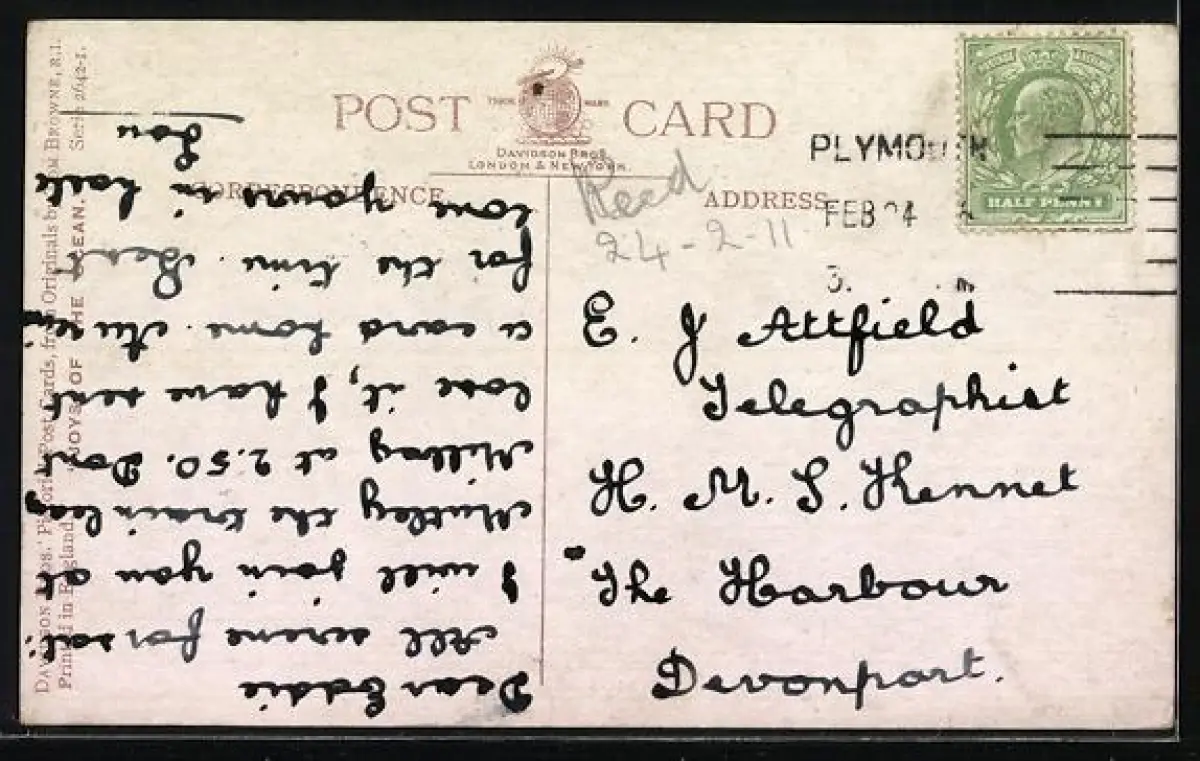 POST CARD
TRADE MARK
DAVIDSON BROS.
LONDON & NEW YORK.
CORRESPONDENCE
ADDRESS
PLYMOUTH
FEB 24
HALF PENNY
Recd
24-2-11
E. J Attfield
Telegraphist
H. M. S. Kennet
The Harbour
Devonport.
Dear Eddie
All serene for sat.
I will join you at
Mutley the train leav
Millbay at 2.50. Dont
lose it, I have sent
a card home.
for the time. Best
love yours in haste
Lou
DAVIDSON BROS.' Pictorial Post Cards, from Originals by TOM BROWNE, R.I.
Printed in England. JOYS OF THE OCEAN. Series 2642-1.